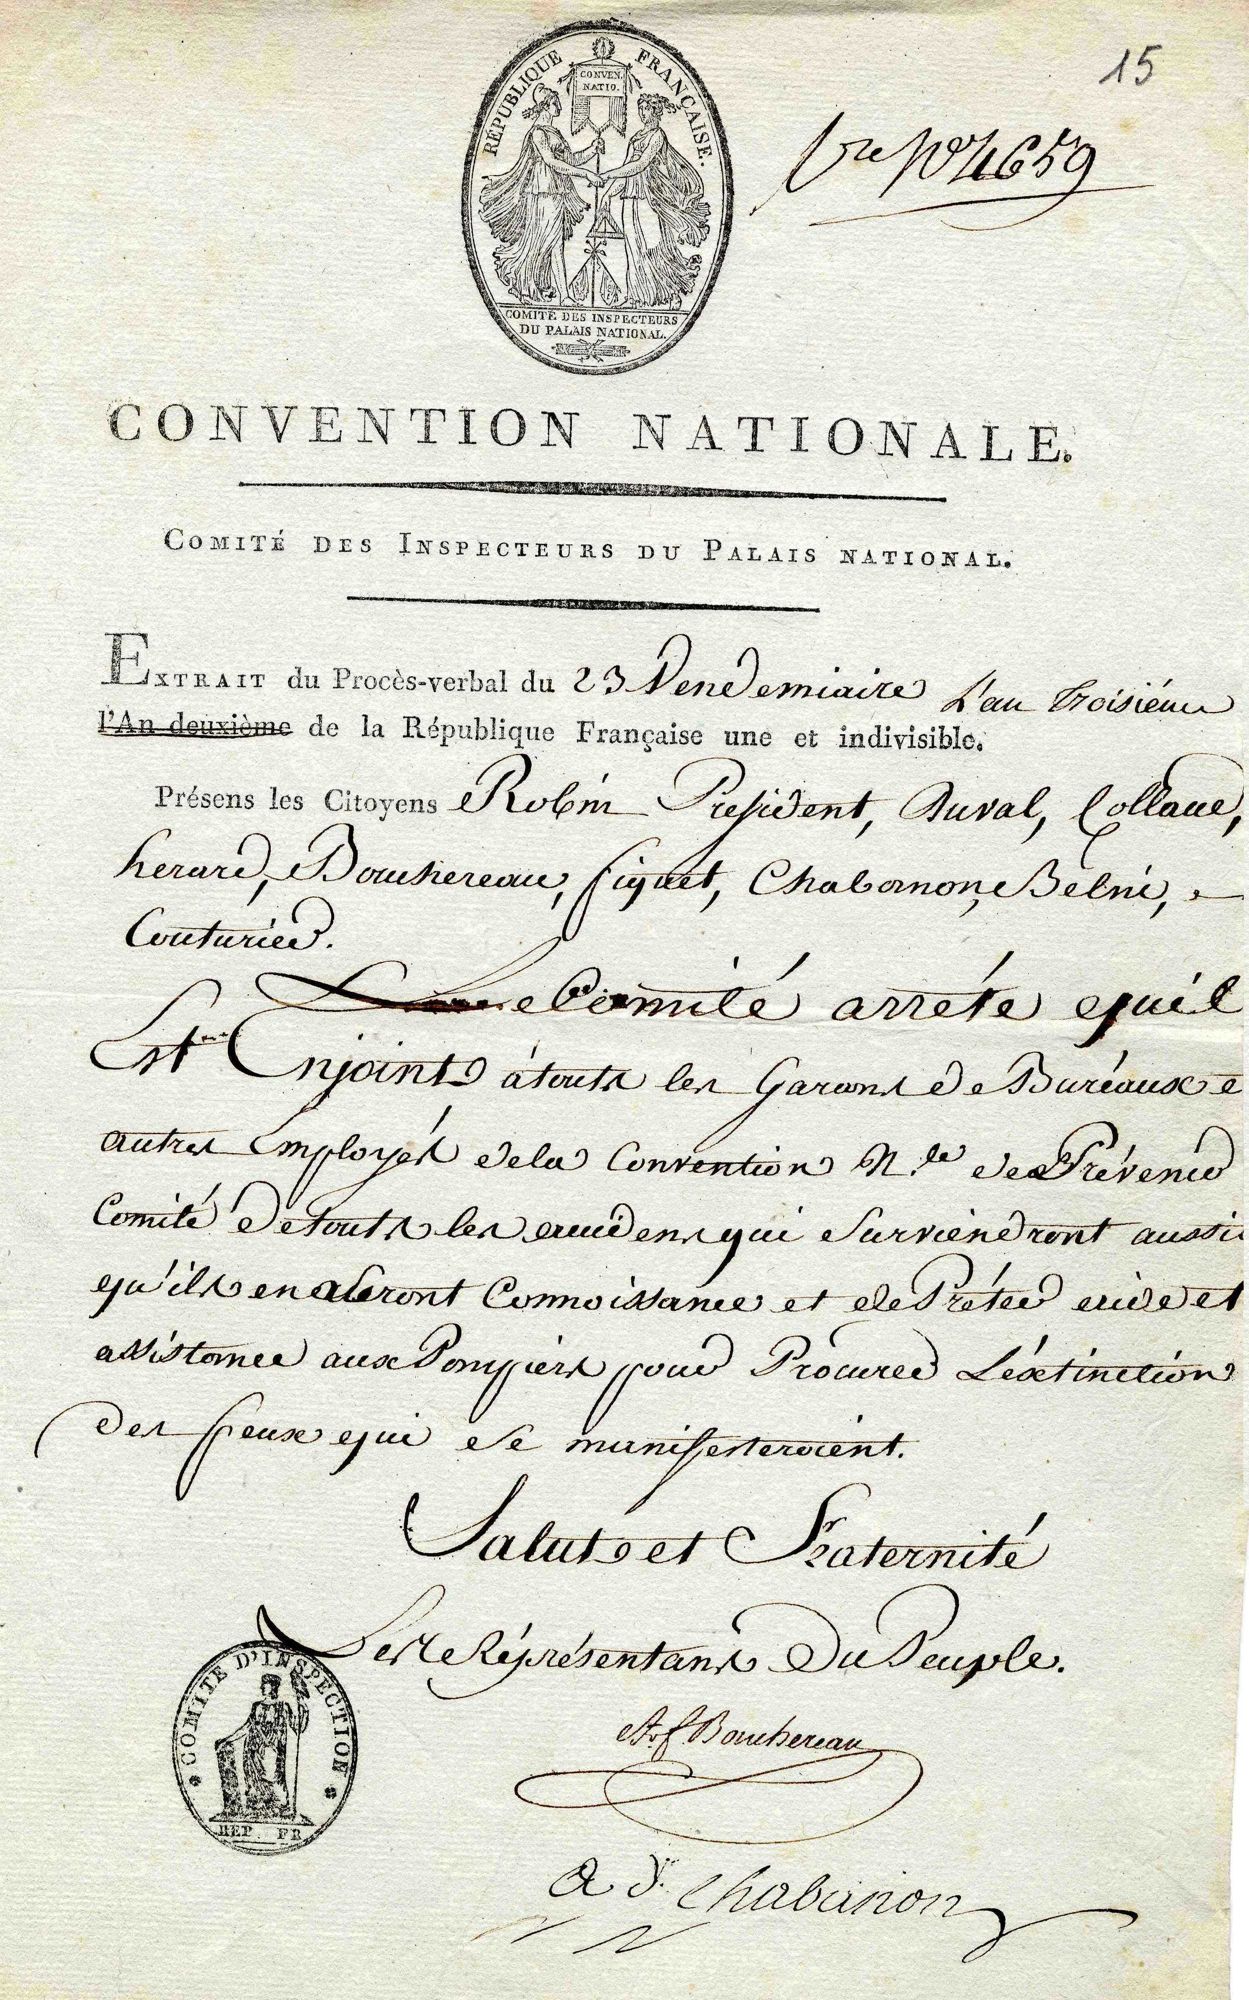 15
N° 4659
RÉPUBLIQUE FRANÇAISE.
CONVEN.
NATIO.
COMITÉ DES INSPECTEURS
DU PALAIS NATIONAL.
CONVENTION NATIONALE.
COMITÉ DES INSPECTEURS DU PALAIS NATIONAL.
EXTRAIT du Procès-verbal du 23 Vendemiaire L'an troisiéme
l'An deuxième de la République Française une et indivisible.
Présens les Citoyens Robin President, Duval,
herard, Bouchereau, fiquet, Chabanon, Belin,
Couturier.
Le Comité arréte qu'il
Est Enjoint à touts les Garçons de Buréaux e
autres Employés de la Convention N.le de Prévenir
Comité de touts les accidens qui Surviendront aussi
qu'ils en auront Connoissance et de Préter aide et
assistance aux Pompiers pour Procurer L'éxtinction
des feux qui Se manifesteroient.
Salut et Fraternité
Les Réprésentans Du Peuple.
Bouchereau
Chabanon
COMITE D'INSPECTION
REP. FR